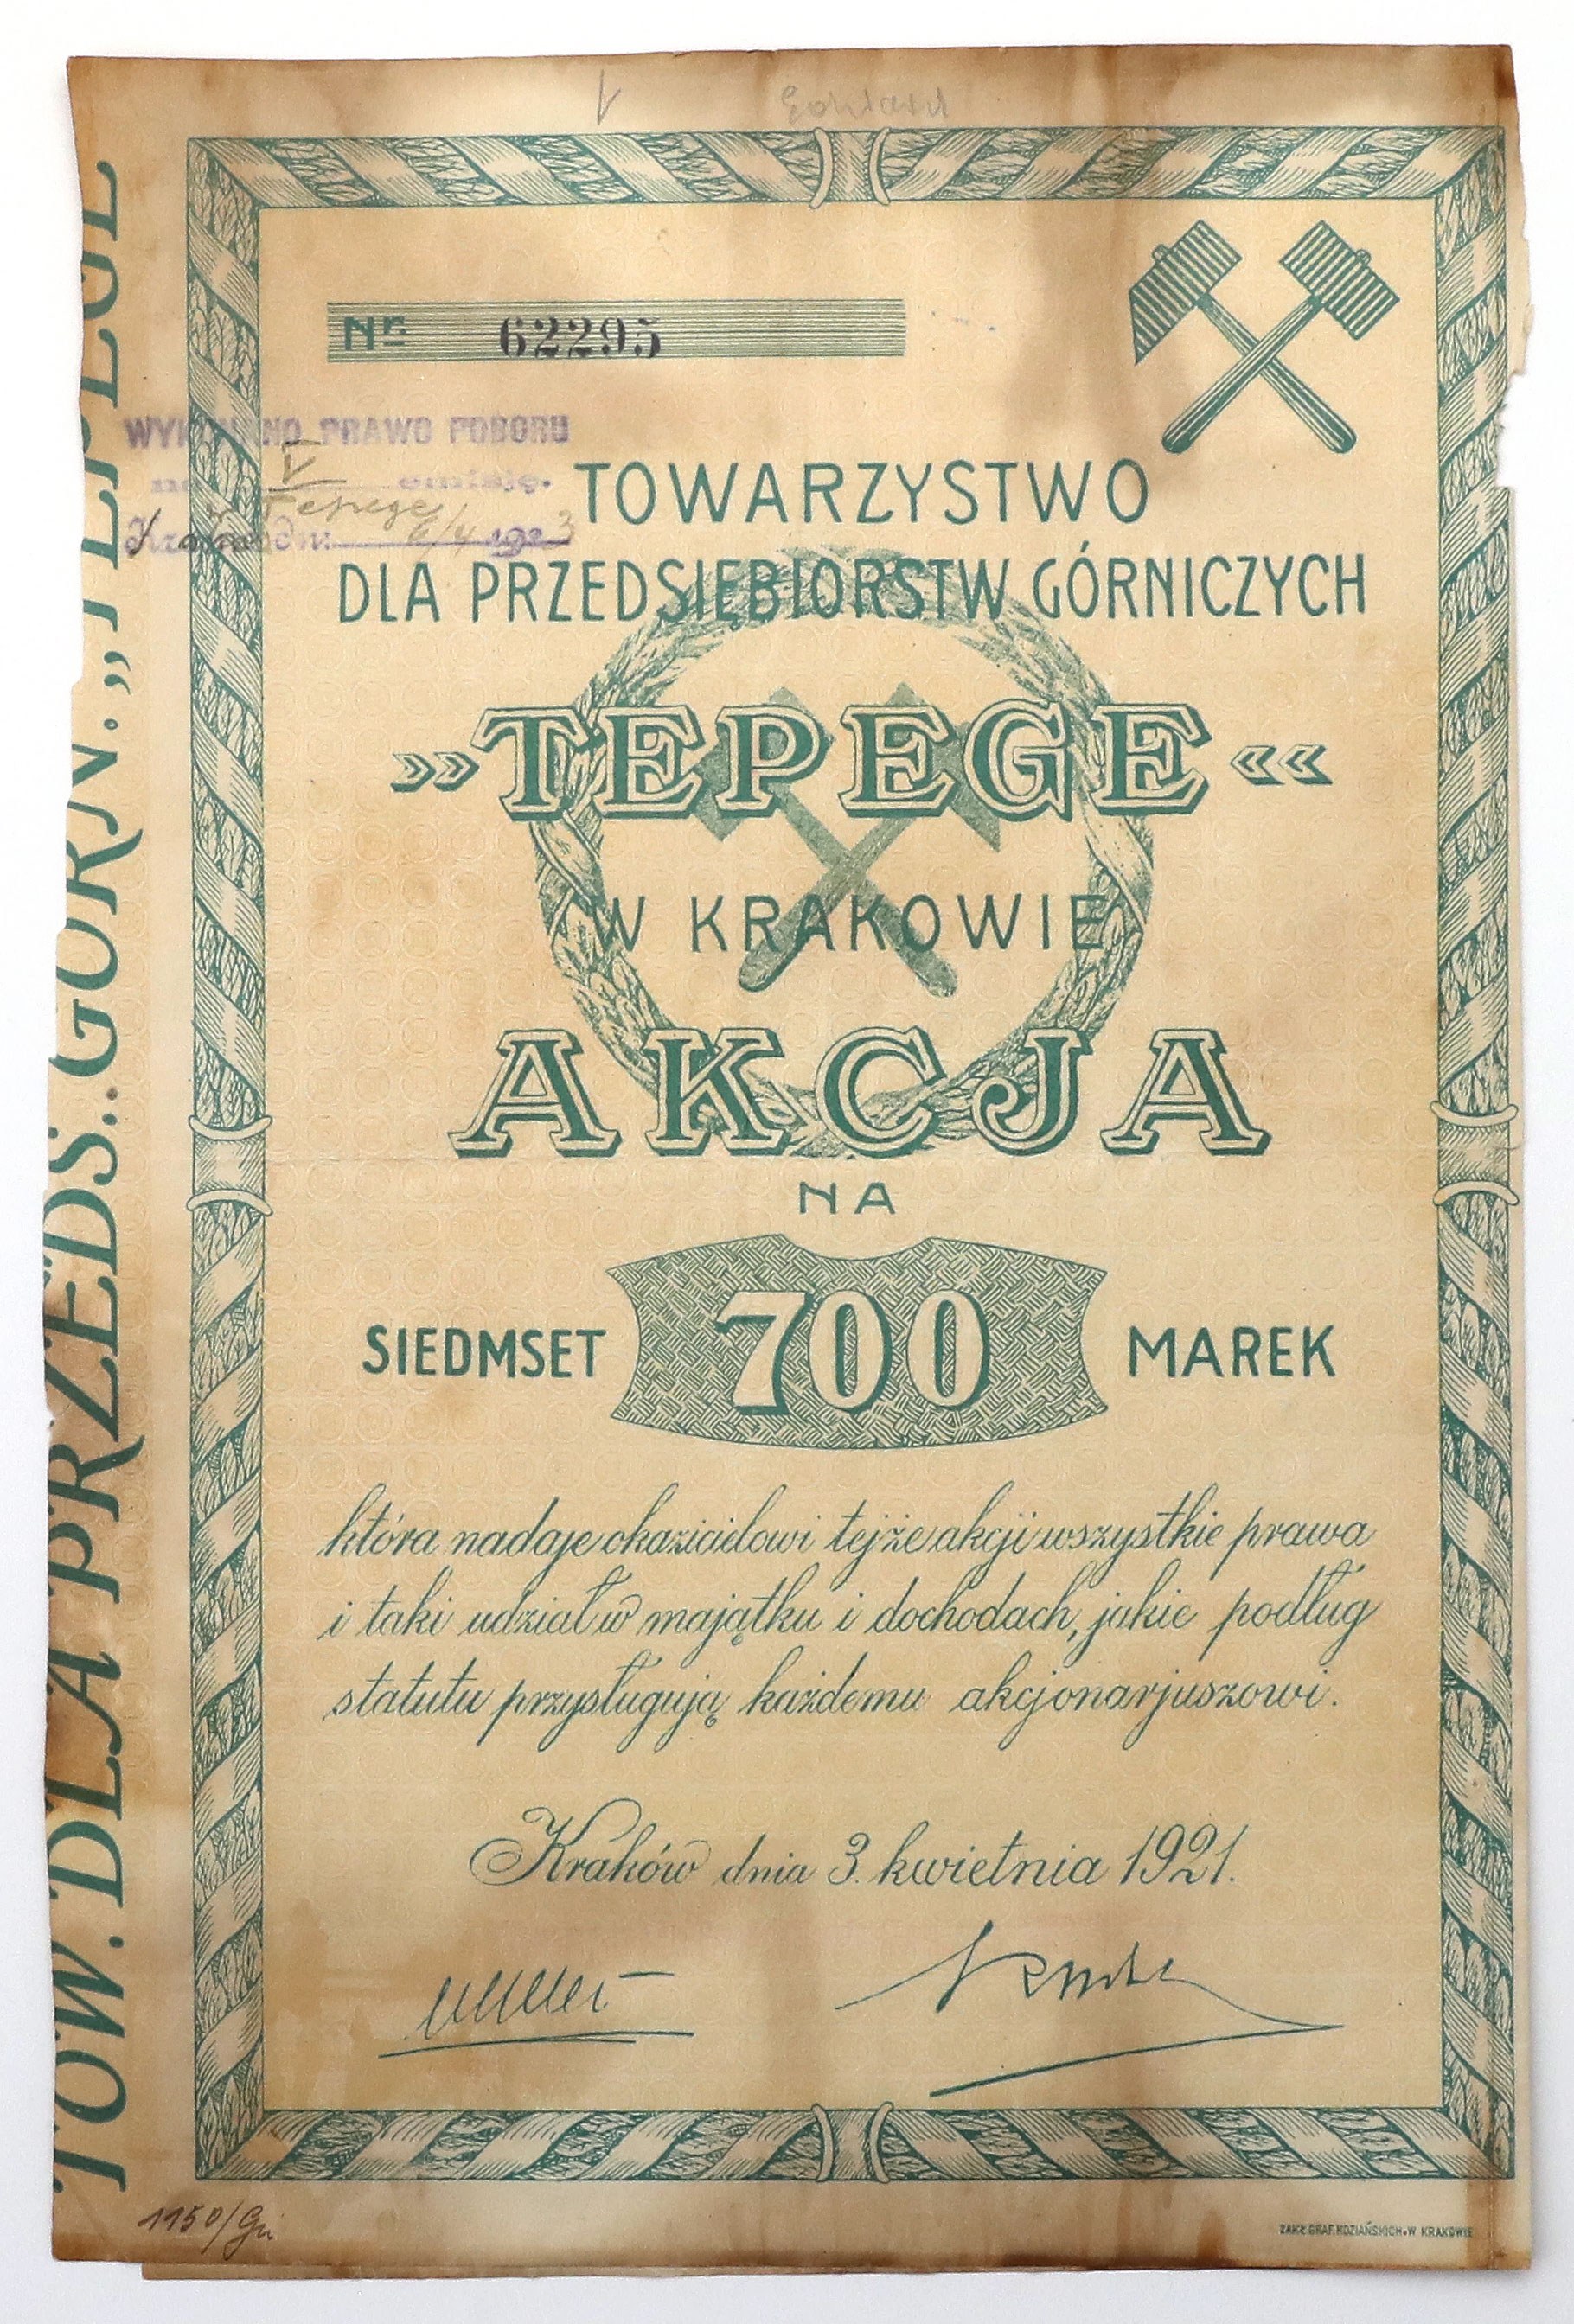 Nr. 62295
WYKONANO PRAWO POBORU
na V emisję.
w Tepege
Kraków dn. 6/4 1923
TOWARZYSTWO
DLA PRZEDSIĘBIORSTW GÓRNICZYCH
»TEPEGE«
W KRAKOWIE
AKCJA
NA
SIEDMSET 700 MAREK
która nadaje okazicielowi tejże akcji wszystkie prawa
i taki udział w majątku i dochodach, jakie podług
statutu przysługują każdemu akcjonarjuszowi.
Kraków dnia 3. kwietnia 1921.
TOW. DLA PRZEDS. GÓRN. „TEPEGE
1150/Gn
ZAKŁ. GRAF. KOZIAŃSKICH W KRAKOWIE